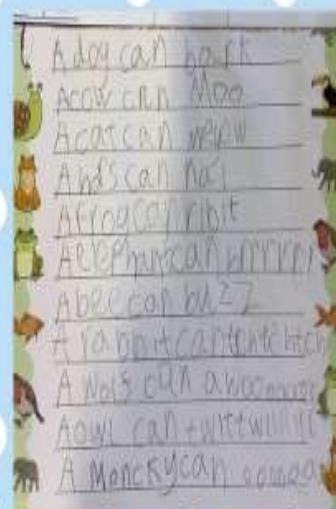 A dog can bark
A cow can Moo
A cat can meiw
A can
A frog can ribit
A elephant can
A bee can buzz
A rabbit can
A Wolf can awoo
A owl can twittwi
A Monckycan